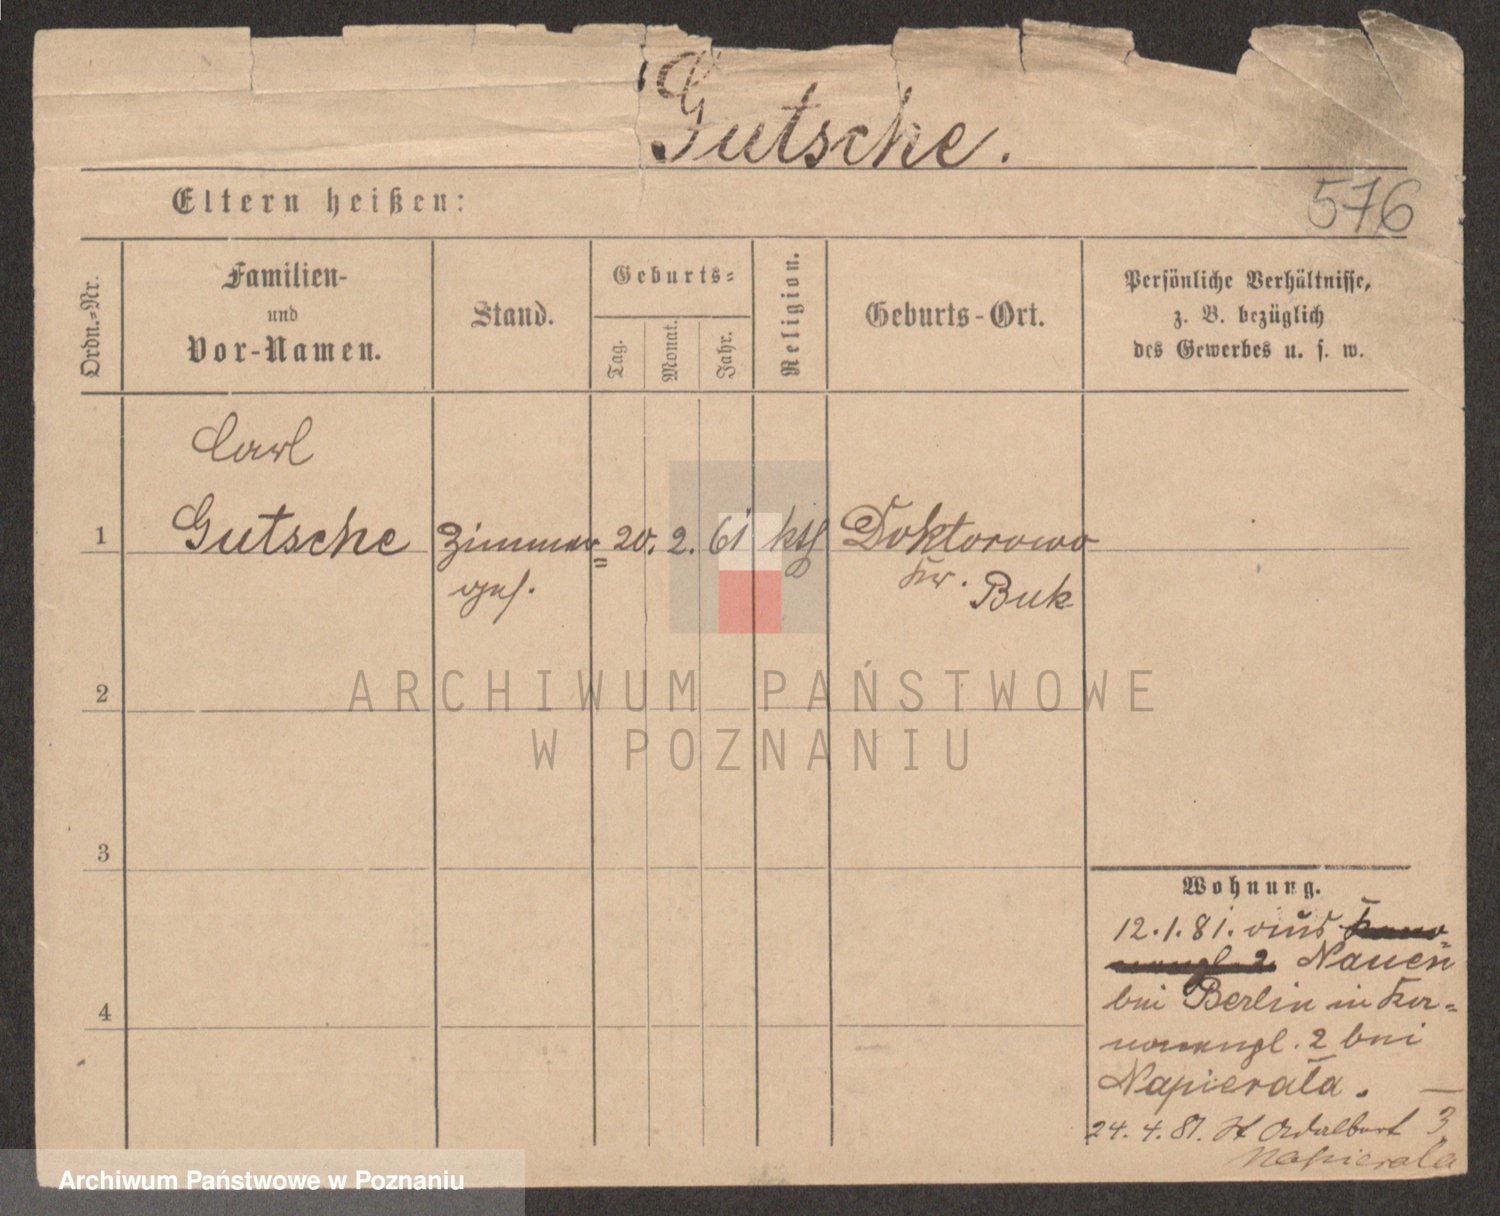 Gutsche.
Eltern heißen:
576
Ordn.-Nr.
Familien-
und
Vor-Namen.
Stand.
Geburts-
Tag.
Monat.
Jahr.
Religion.
Geburts-Ort.
Persönliche Verhältnisse,
z. B. bezüglich
des Gewerbes u. s. w.
Carl
1 Gutsche Zimmer= 20. 2. 61 kth Doktorowo
ges. Kr. Buk
2
ARCHIWUM PAŃSTWOWE
W POZNANIU
3
Wohnung.
12.1.81. aus
Nauen
4
bei Berlin in Kar=
2 bei
Napierata.
24.4.81. St Adalbert 3
Napierala
Archiwum Państwowe w Poznaniu